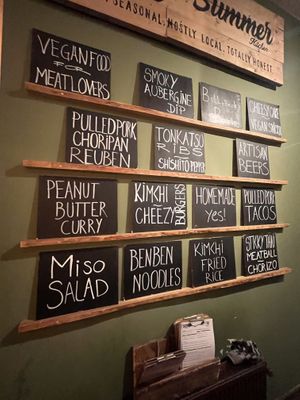 Summer
Kitchen
SEASONAL, MOSTLY LOCAL, TOTALLY HONEST.
VEGAN FOOD
FOR
MEATLOVERS
SMOKY
AUBERGINE
DIP
CHEESY CAKE
VEGAN
PULLEDPORK
CHORIPAN
REUBEN
TONKATSU
RIBS
SHISHITO PEPPER
ARTISAN
BEERS
PEANUT
BUTTER
CURRY
KIMCHI
CHEEZY
BURGERS
HOMEMADE
Yes!
PULLED
TACOS
MISO
SALAD
BENBEN
NOODLES
KIMCHI
FRIED
RICE
STICKY THAI
MEATBALL
CHORIZO